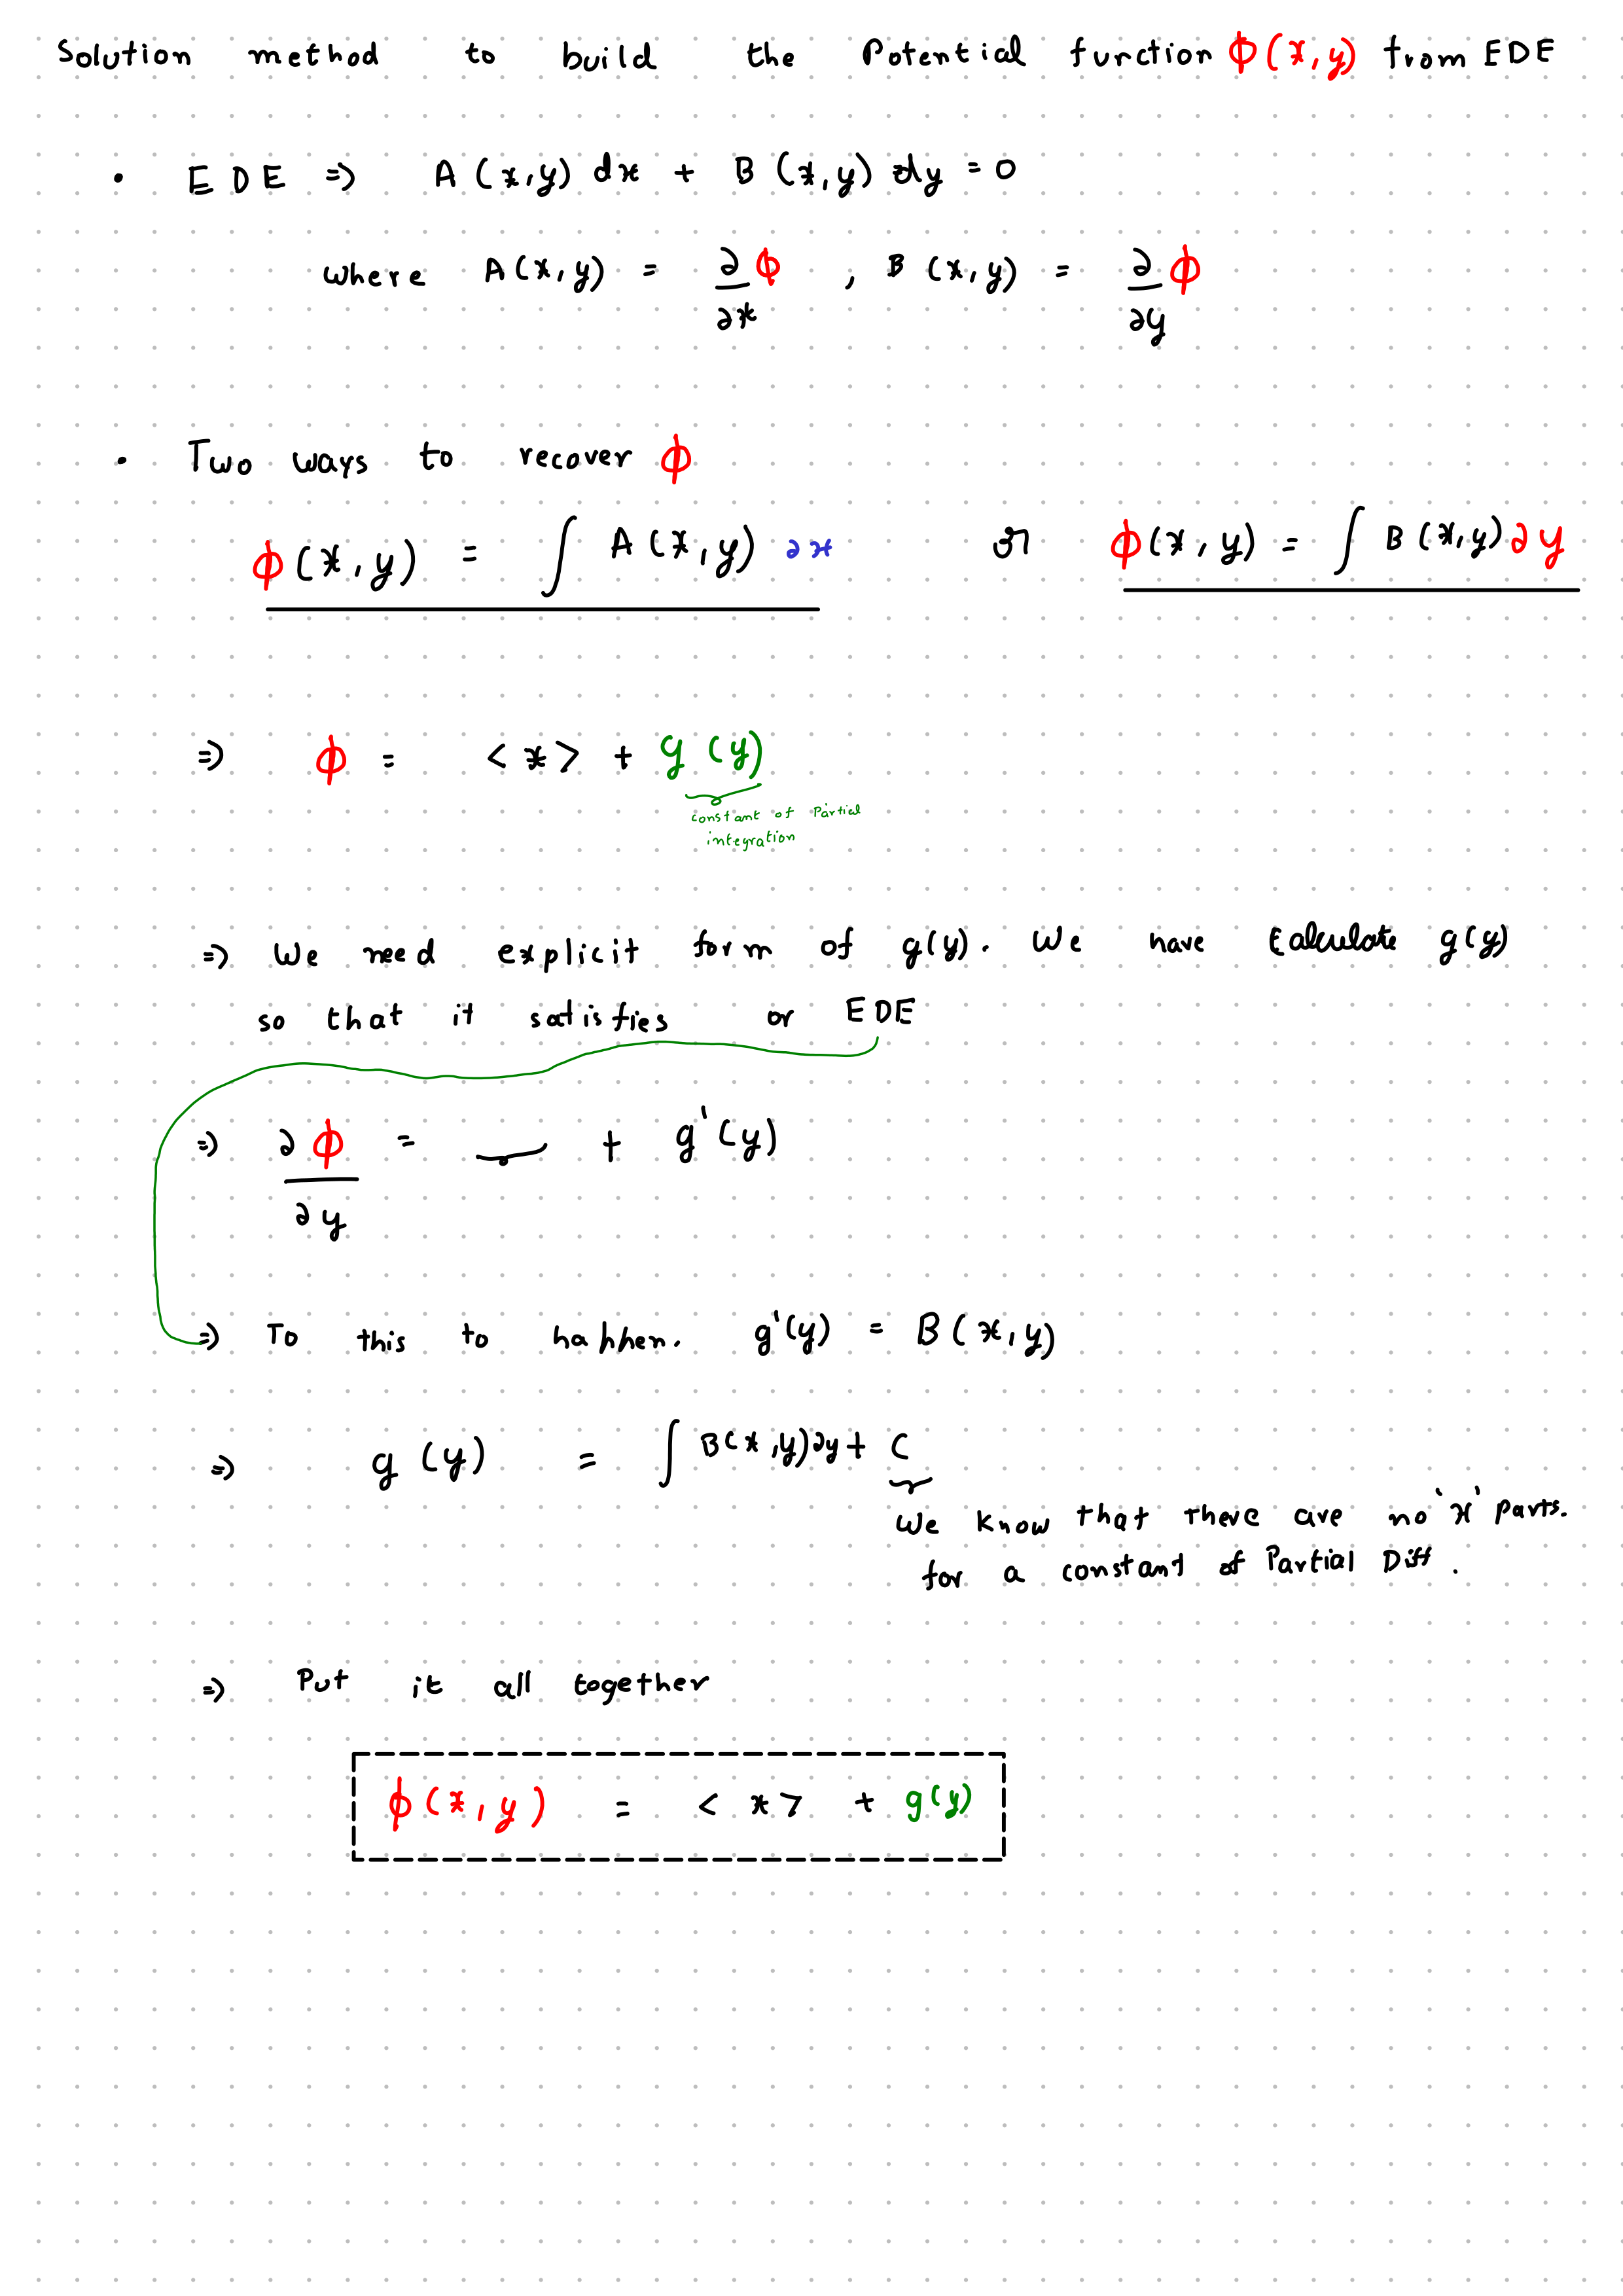 Solution method to build the Potential function ϕ(x,y) from EDE
• EDE ⇒ A(x,y) dx + B(x,y) dy = 0
where A(x,y) = ∂/∂x ϕ , B(x,y) = ∂/∂y ϕ
• Two ways to recover ϕ
ϕ(x,y) = ∫ A(x,y) ∂x or ϕ(x,y) = ∫ B(x,y) ∂y
⇒ ϕ = < * > + g(y)
constant of Partial
integration
⇒ We need explicit form of g(y). We have calculate g(y)
so that it satisfies or EDE
⇒ ∂ϕ/∂y = __ + g'(y)
⇒ To this to happen. g'(y) = B(x,y)
⇒ g(y) = ∫ B(x,y)∂y + C
We know that there are no 'x' parts.
for a constant of Partial Diff.
⇒ Put it all together
ϕ(x,y) = < * > + g(y)